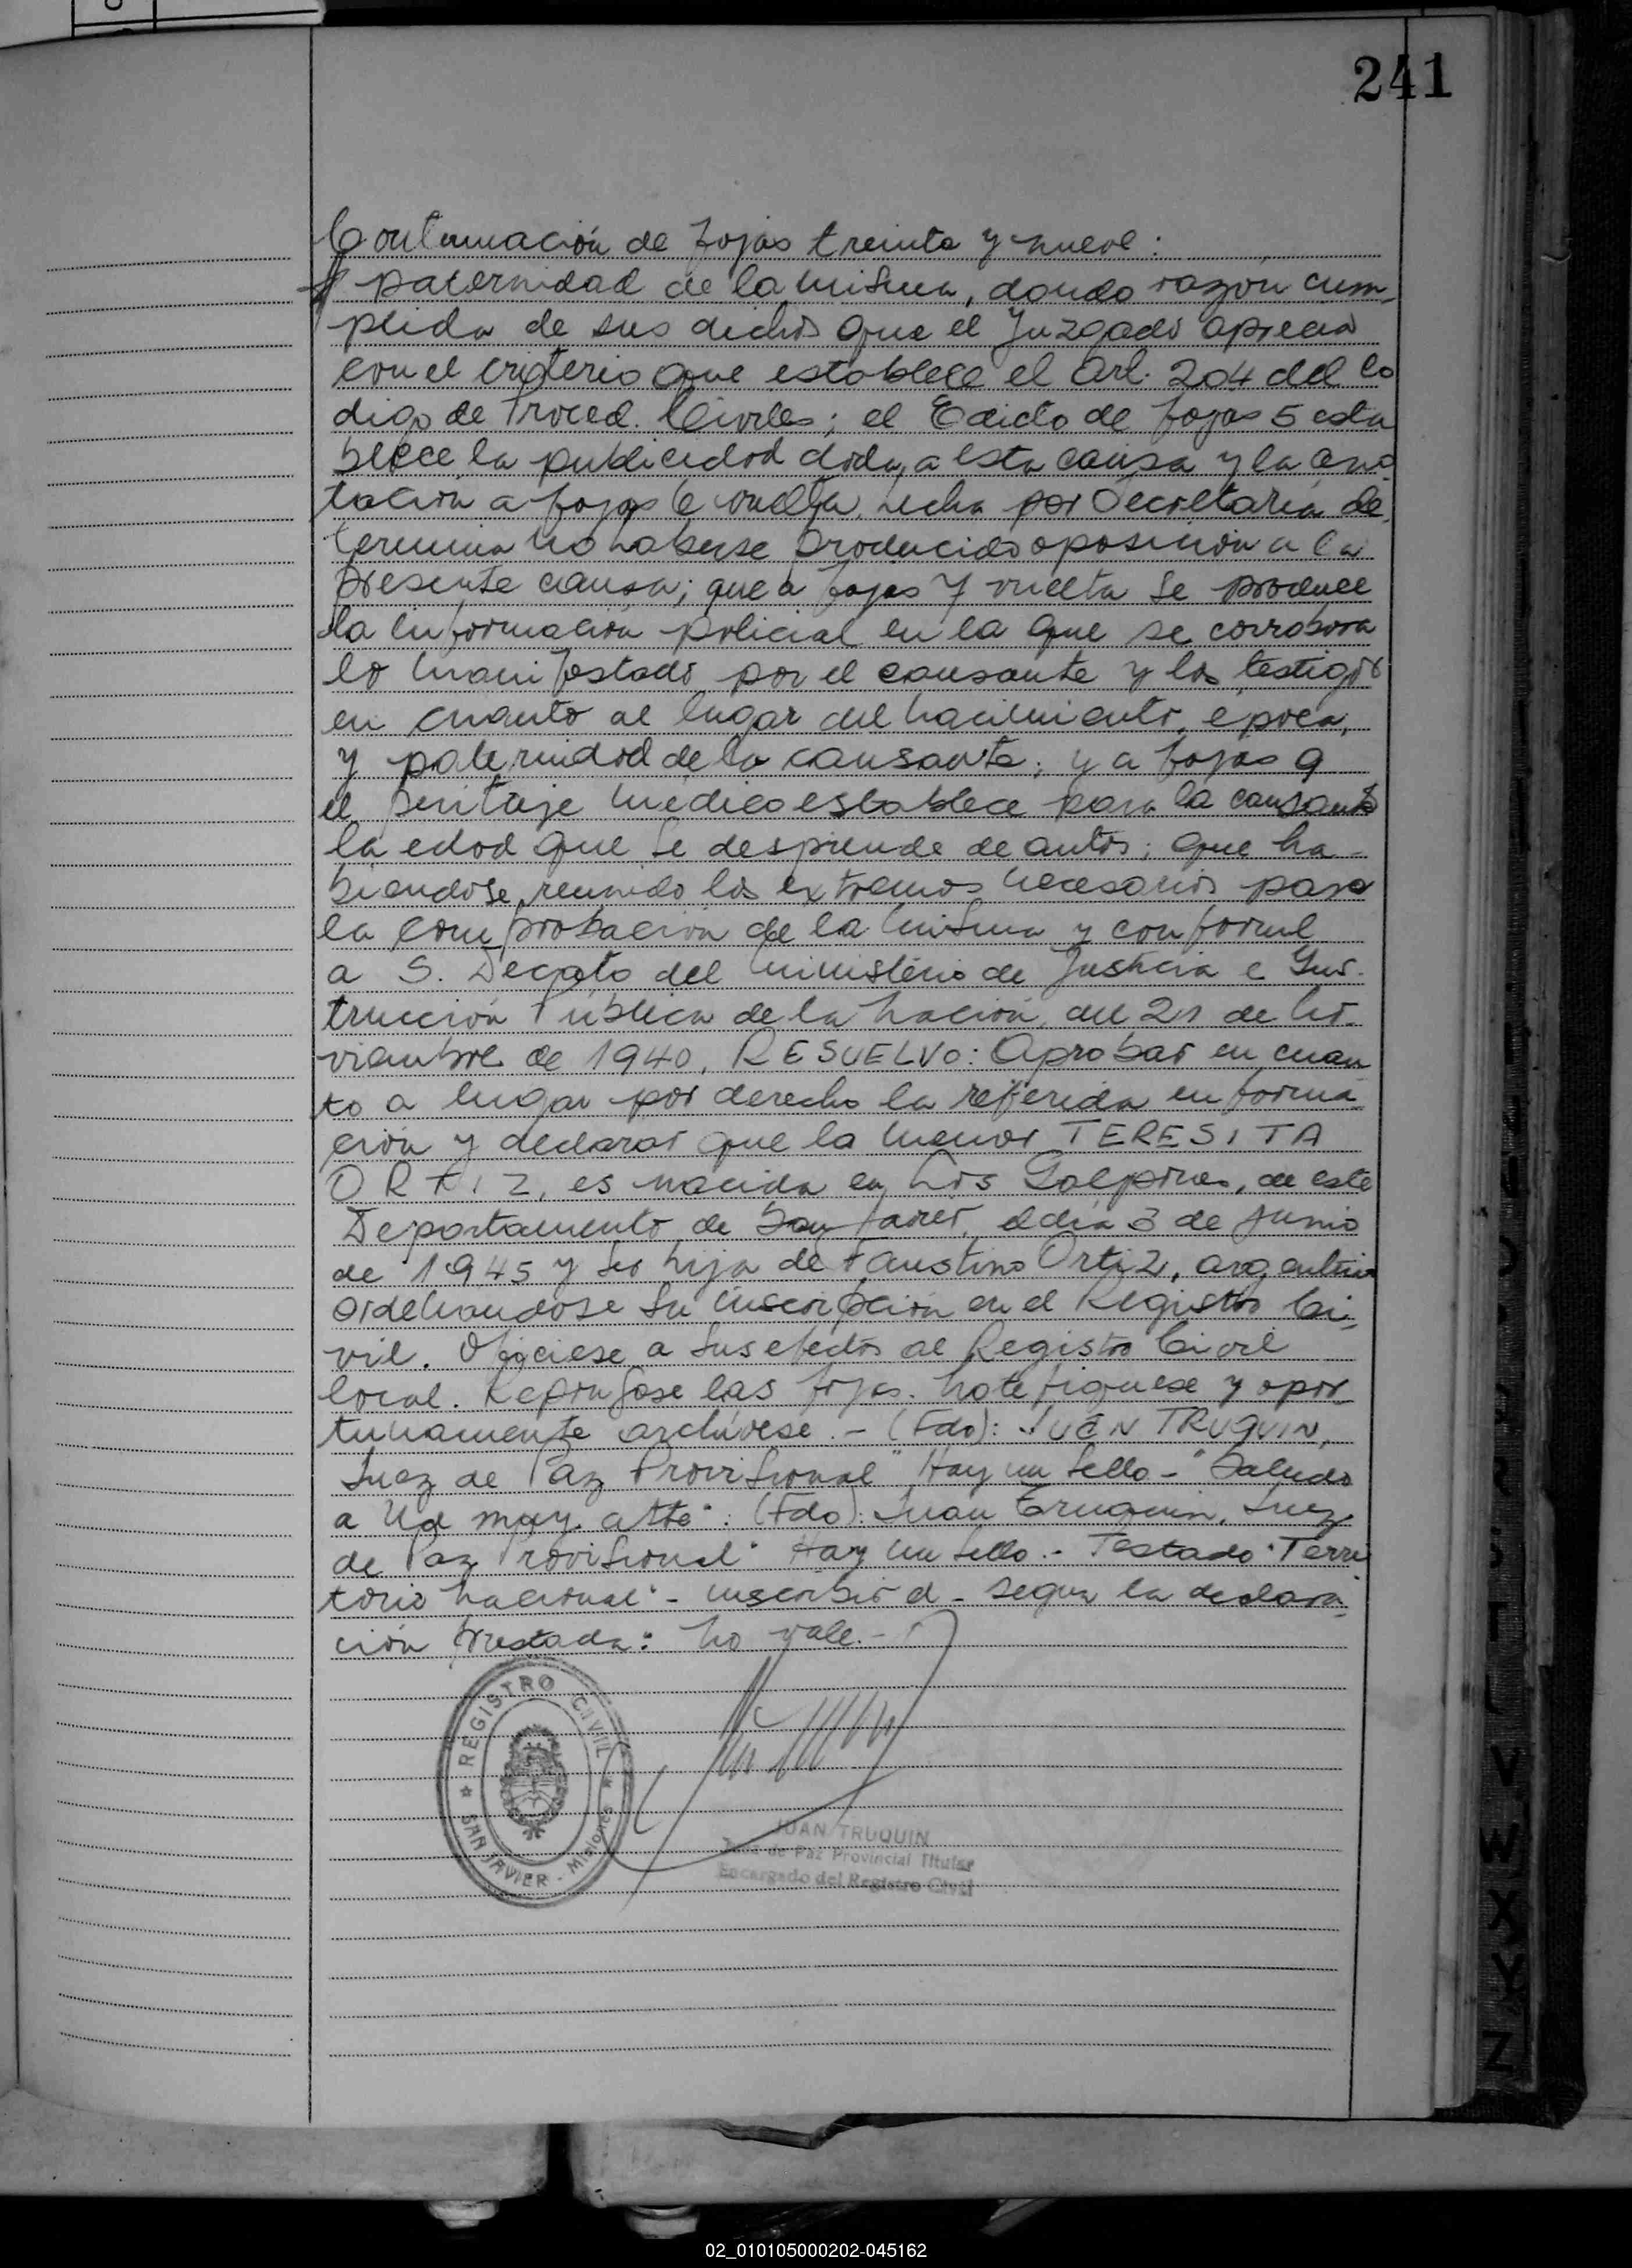 241
Continuación de fojas treinta y nueve:
paternidad de la misma, dando razón cum-
plida de sus dichos que el Juzgado aprecia
con el criterio que establece el Art. 204 del Co
digo de Proced. Civiles; el Edicto de fojas 5 esta
blece la publicidad dada a esta causa y la ano
tación a fojas 6 vuelta, hecha por Secretaría de
termina no haberse producido oposición a la
presente causa; que a fojas 7 vuelta se produce
la información policial en la que se corrobora
lo manifestado por el causante y los testigos
en cuanto al lugar del nacimiento, epoca,
y paternidad de la causante; y a fojas 9
el peritaje médico establece para la causante
la edad que se desprende de autos; que ha-
biendose reunido los extremos necesarios para
la comprobación de la misma y conforme
a S. Decreto del Ministerio de Justicia e Ins-
trucción Pública de la Nación, del 21 de No-
viembre de 1940, RESUELVO: Aprobar en cuan
to a lugar por derecho la referida informa-
ción y declarar que la menor TERESITA
ORTIZ, es nacida en Los Galpones, de este
Departamento de San Javier, el día 3 de Junio
de 1945 y ser hija de Faustino Ortiz, argentino
ordenandose su inscripción en el Registro Ci-
vil. Ofíciese a sus efectos al Registro Civil
local. Repóngase las fojas. Notifíquese y opor
tunamente archívese.- (Fdo): JUAN TRUQUIN,
Juez de Paz Provisional" Hay un sello-"Saludo
a Ud muy atte": (Fdo): Juan Truquin, Juez
de Paz Provisional" Hay un sello.- Testado "Terri
torio Nacional"- inscribió el- segun la declara-
ción prestada: No vale.-
REGISTRO CIVIL
SAN JAVIER - Misiones
JUAN TRUQUIN
Juez de Paz Provincial Titular
Encargado del Registro Civil
L
V
W
X
Y
Z
02_010105000202-045162